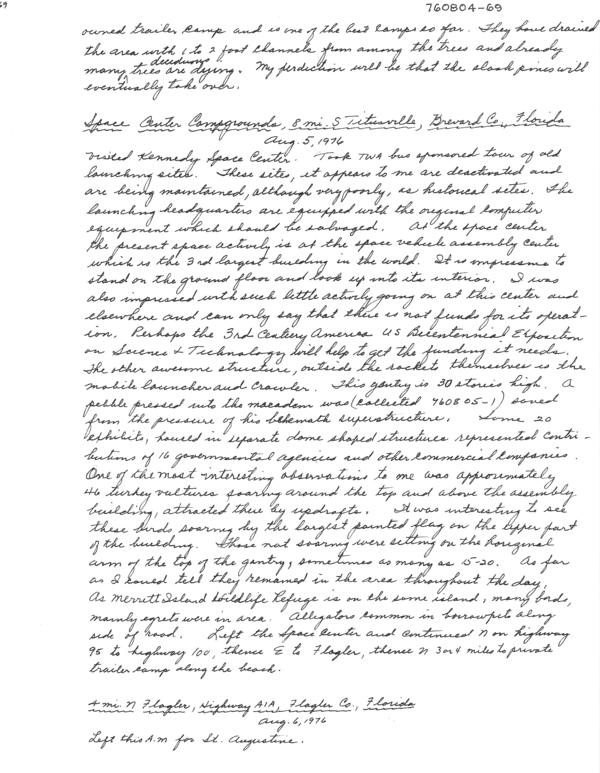 69
760804-69
owned trailer camp and is one of the best camps so far. They have drained
the area with 1 to 2 foot channels from among the trees and already
deciduous
many trees are dying. My perdiction will be that the slash pines will
eventually take over.
Space Center Campgrounds, 8 mi. S Titusville, Brevard Co., Florida
Aug. 5, 1976
Visited Kennedy Space Center. Took TWA bus sponsored tour of old
launching sites. These sites, it appears to me are deactivated and
are being maintained, although very poorly, as historical sites. The
launching headquarters are equipped with the original computer
equipment which should be salvaged. At the space center
the present space activity is at the space vehicle assembly center
which is the 3rd largest building in the world. It is impressive to
stand on the ground floor and look up into its interior. I was
also impressed with such little activity going on at this center and
elsewhere and can only say that there is not funds for its operat-
ion. Perhaps the 3rd Century America US Bicentennial Exposition
on Science & Technology will help to get the funding it needs.
The other awesome structure, outside the rockets themselves is the
mobile launcher and Crawler. This gantry is 30 stories high. A
pebble pressed into the macadam was (collected 760805-1) saved
from the pressure of his behemath superstructure. Some 20
exhibits, housed in separate dome shaped structures represented contri-
butions of 16 governmental agencies and other commercial companies.
One of the most interesting observations to me was approximately
46 turkey vultures soaring around the top and above the assembly
building, attracted there by updrafts. It was interesting to see
these birds soaring by the largest painted flag on the upper part
of the building. Those not soaring were sitting on the horizonal
arm of the top of the gantry, sometimes as many as 15-20. As far
as I coured tell they remained in the area throughout the day.
As Merrett Island Wildlife Refuge is on the same island, many birds,
mainly egrets were in area. Alligators common in borrowpits along
side of road. Left the Space Center and continued N on highway
95 to highway 100, thence E to Flagler, thence N 3 or 4 miles to private
trailer camp along the beach.
4 mi. N Flagler, Highway A1A, Flagler Co., Florida
Aug. 6, 1976
Left this A.M for St. Augustine.